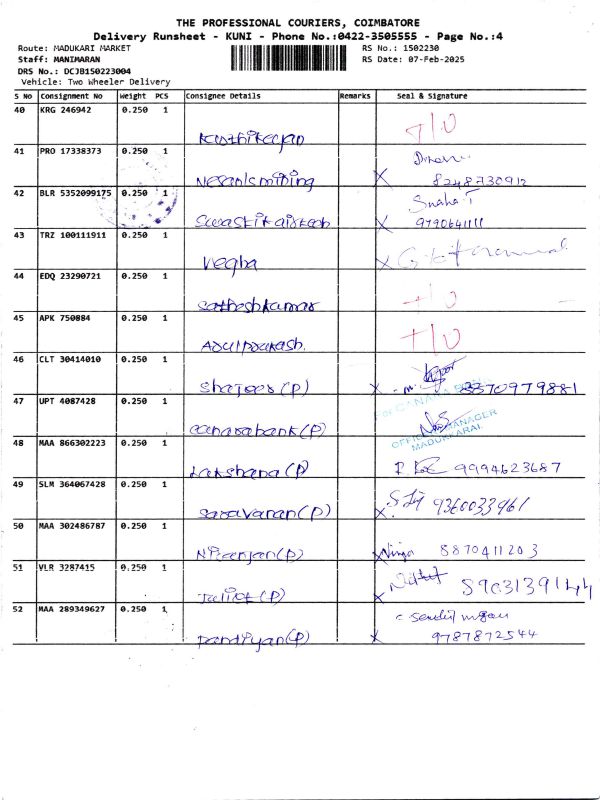 THE PROFESSIONAL COURIERS, COIMBATORE
Delivery Runsheet - KUNI - Phone No.:0422-3505555 - Page No.:4
Route: MADUKARI MARKET RS No.: 1502230
Staff: MANIMARAN RS Date: 07-Feb-2025
DRS No.: DCJB150223004
Vehicle: Two Wheeler Delivery
S No Consignment No Weight PCS Consignee Details Remarks Seal & Signature
40 KRG 246942 0.250 1
Karthikeyan T/O
41 PRO 17338373 0.250 1
8248730912
42 BLR 5352099175 0.250 1
Sneha T
9790641111
43 TRZ 100111911 0.250 1
Megha
44 EDQ 23290721 0.250 1
Satheshkumar T/O
45 APK 750884 0.250 1
T/O
46 CLT 30414010 0.250 1
(P) 8870979881
47 UPT 4087428 0.250 1
For CANARA BANK
Canarabank (P)
OFFICER / MANAGER
MADUKKARAI
48 MAA 866302223 0.250 1
Lakshana (P) 9994623687
49 SLM 364067428 0.250 1
Saravanan (P) 9360033961
50 MAA 302486787 0.250 1
Niranjan (P) 8870411203
51 VLR 3287415 0.250 1
(P) 8903139144
52 MAA 289349627 0.250 1
Pandiyan (P) 9787872544